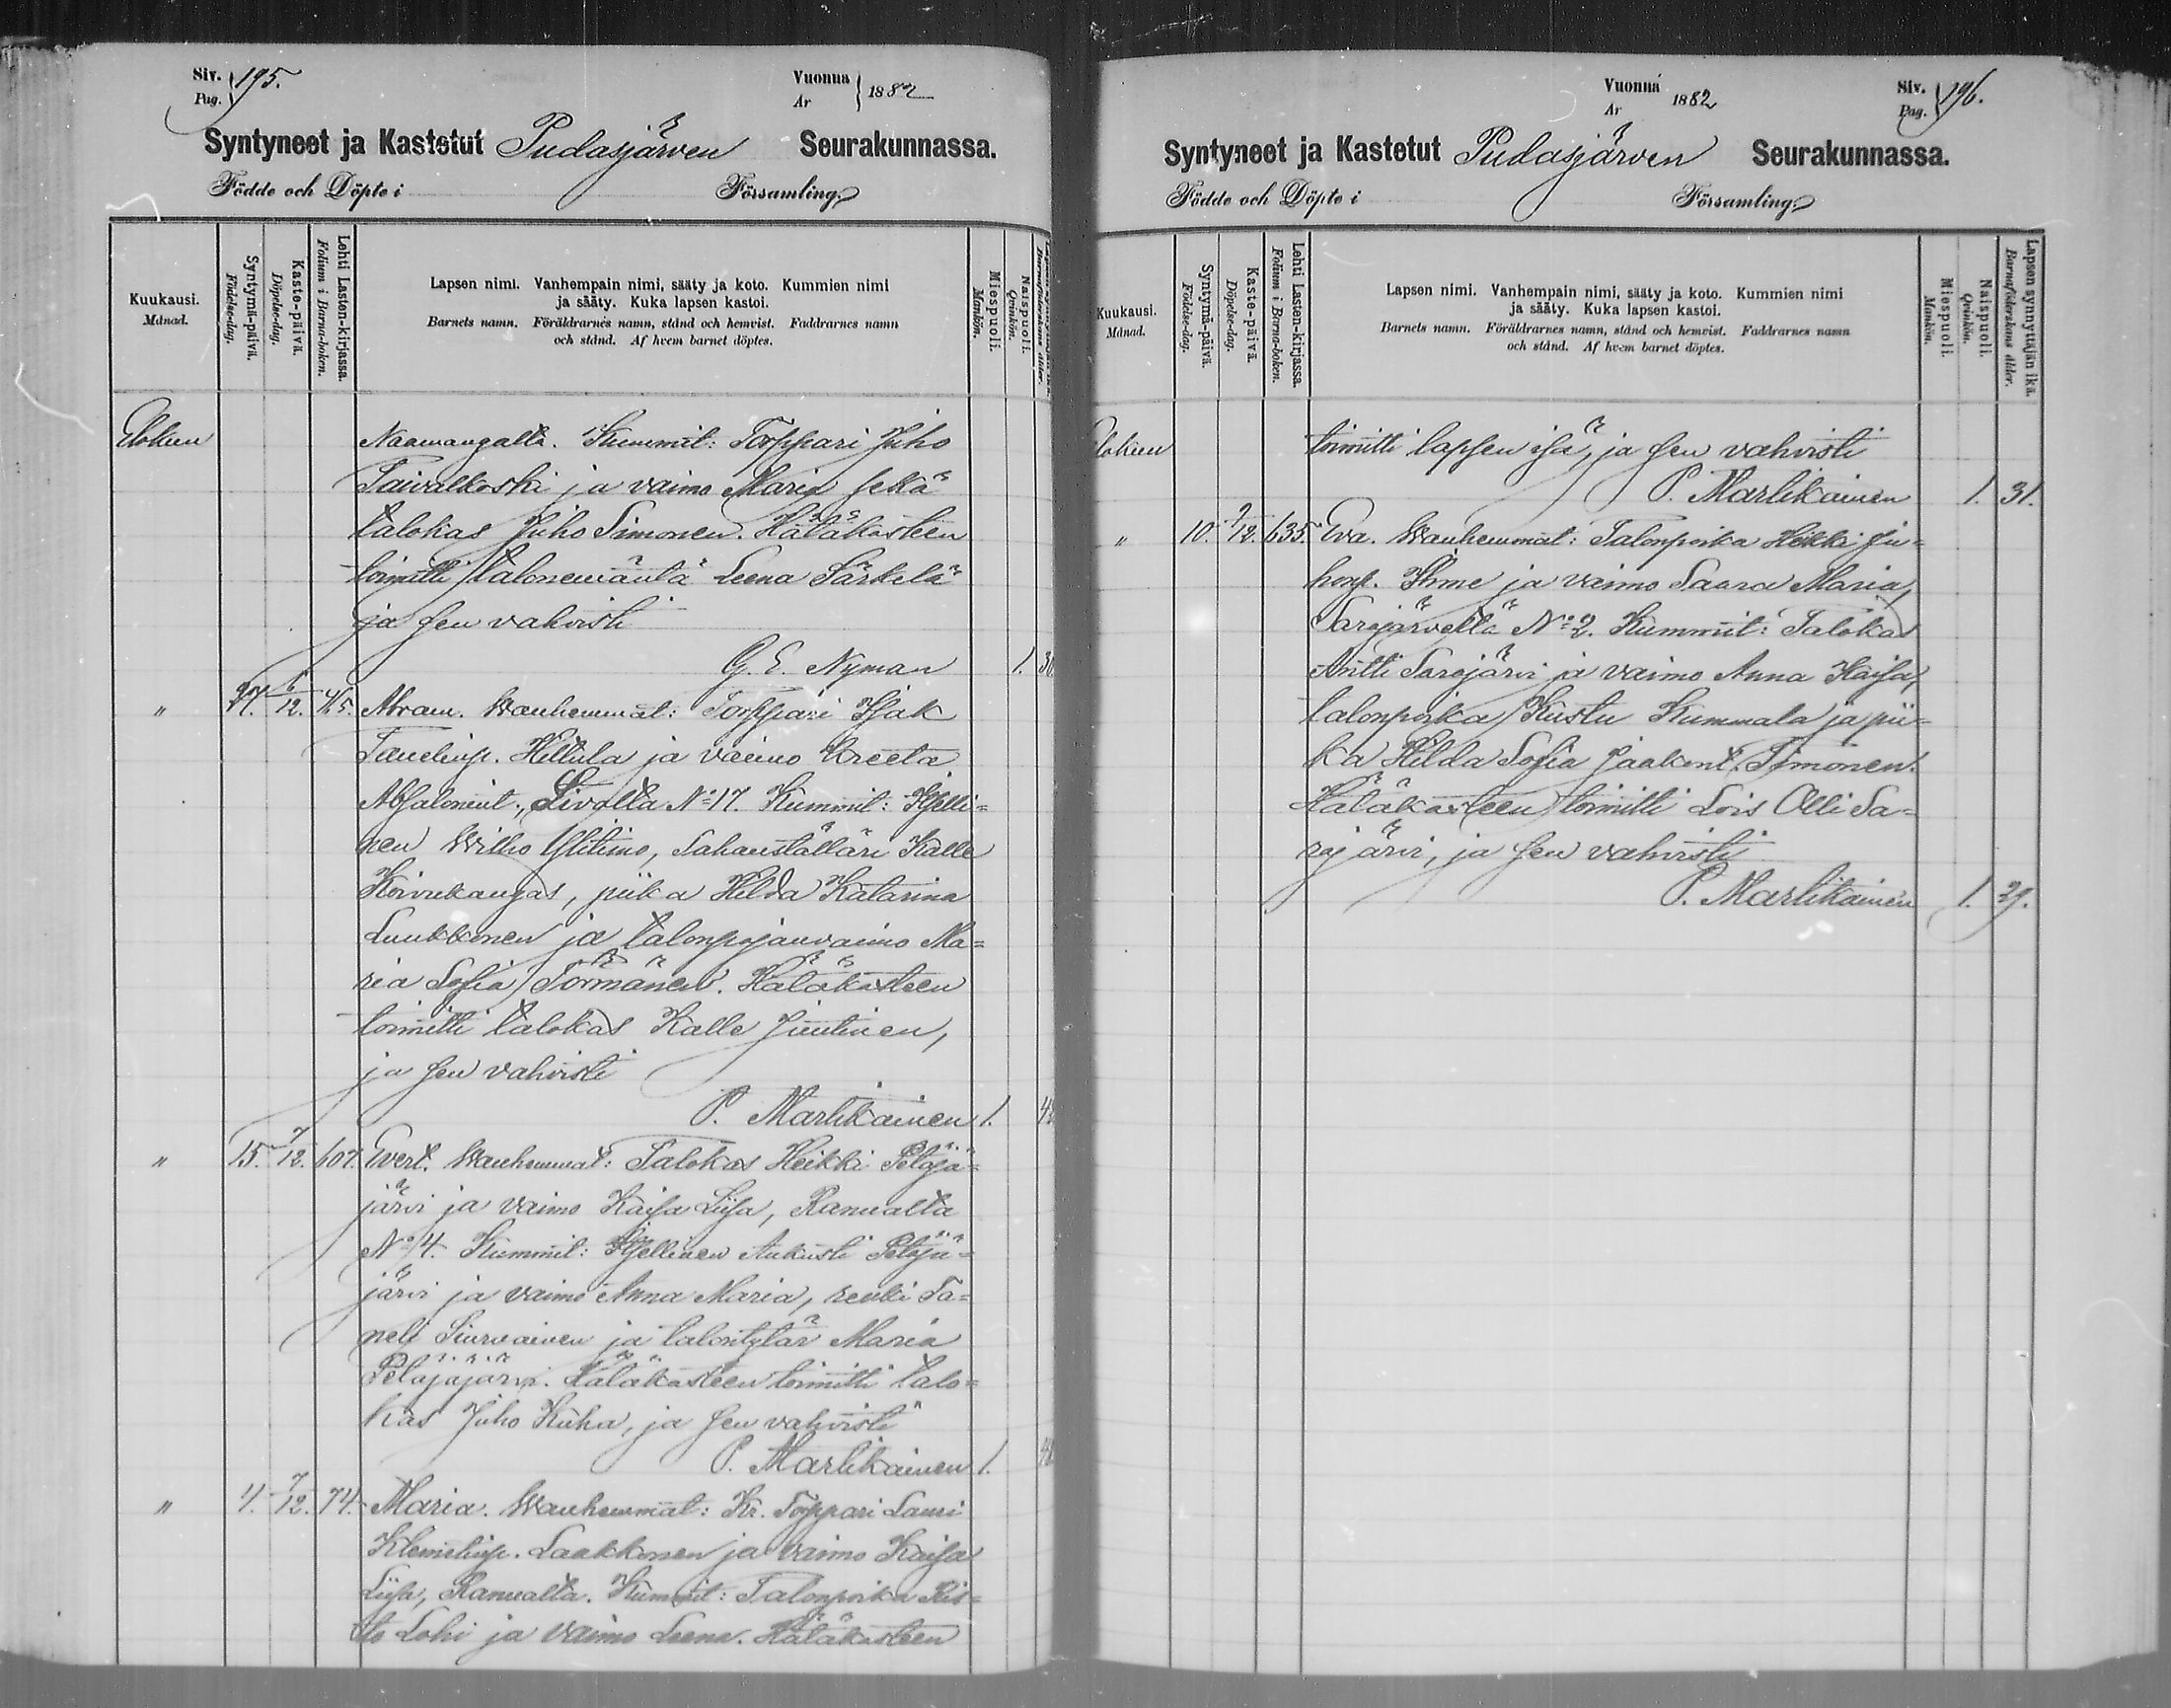 Siv. 195.
Pag.
Vuonna 1882
År
Syntyneet ja Kastetut Pudasjärven Seurakunnassa.
Födde och Döpte i Församling.
Kuukausi.
Månad.
Syntymä-päivä.
Födelse-dag.
Kaste-päivä.
Döpelse-dag.
Lehti Lasten-kirjassa.
Folium i Barna-boken.
Lapsen nimi. Vanhempain nimi, sääty ja koto. Kummien nimi
ja sääty. Kuka lapsen kastoi.
Barnets namn. Föräldrarnes namn, stånd och hemvist. Faddrarnes namn
och stånd. Af hvem barnet döptes.
Miespuoli.
Mankön.
Naispuoli.
Qvinkön.
Elokuu Naamangalta. Kummit: Torppari Juho
Taivalkoski ja vaimo Maria sekä
talokas Juho Simonen. Hätäkasteen
toimitti talonemäntä Leena Särkelä
ja sen vahvisti
G. E. Nyman 1.
" 6/12. Abram. Wanhemmat: Torppari Isak
Tanelinp. Hiltula ja vaimo Kreeta
Absalomint., Livolta No 17. Kummit: Itselli=
nen Wilho Ylitimo, Sahanställäri Kalle
Koivukangas, piika Hilda Katarina
Luukkonen ja talonpojanvaimo Ma=
ria Sofia Törmänen. Hätäkasteen
toimitti talokas Kalle Juutinen,
ja sen vahvisti
P. Martikainen 1.
" 15. 7/12. 607. Evert. Wanhemmat: Talokas Heikki Petäjä=
järvi ja vaimo Kaisa Liisa, Ranualta
No 4. Kummit: Itsellinen Aukusti Petäjä=
järvi ja vaimo Anna Maria, renki Ta=
neli Siurnainen ja talontytär Maria
Petäjäjärvi. Hätäkasteen toimitti talo=
kas Juho Kuha, ja sen vahvisti
P. Martikainen 1.
" 4. 7/12. 74. Maria. Wanhemmat: Kr. Torppari Lauri
Klemetinp. Laakkonen ja vaimo Kaisa
Liisa, Ranualta. Kummit: Talonpoika Ris=
to Lohi ja vaimo Leena. Hätäkasteen
Vuonna 1882
År
Siv. 196.
Pag.
Syntyneet ja Kastetut Pudasjärven Seurakunnassa.
Födde och Döpte i Församling.
Kuukausi.
Månad.
Syntymä-päivä.
Födelse-dag.
Kaste-päivä.
Döpelse-dag.
Lehti Lasten-kirjassa.
Folium i Barna-boken.
Lapsen nimi. Vanhempain nimi, sääty ja koto. Kummien nimi
ja sääty. Kuka lapsen kastoi.
Barnets namn. Föräldrarnes namn, stånd och hemvist. Faddrarnes namn
och stånd. Af hvem barnet döptes.
Miespuoli.
Mankön.
Naispuoli.
Qvinkön.
Lapsen synnyttäjän ikä.
Barnaföderskans ålder.
lokuu toimitti lapsen isä, ja sen vahvisti
P. Martikainen 1. 31.
" 10. 9/12. 635. Eva. Wanhemmat: Talonpoika Heikki Ju=
honp. Ihme ja vaimo Saara Maria,
Sarajärveltä No 2. Kummit: Talokas
Antti Sarajärvi ja vaimo Anna Kaisa,
talonpoika Kustu Kummala ja pii=
ka Hilda Sofia Jaakont. Timonen.
Hätäkasteen toimitti Lois Olli Sa=
rajärvi, ja sen vahvisti
P. Martikainen 1. 29.